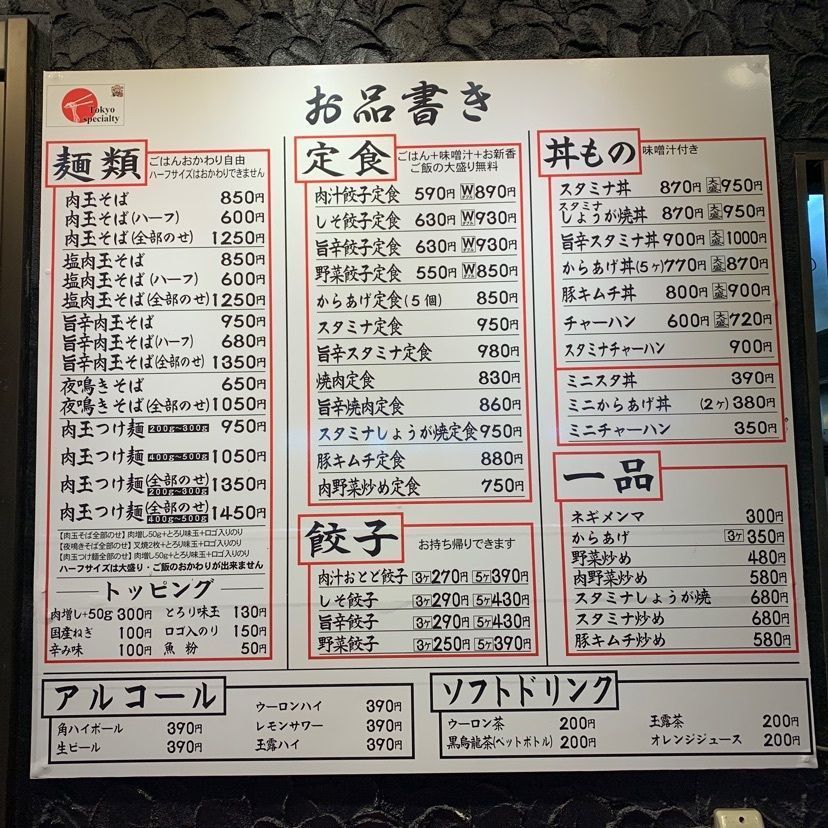 Tokyo
specialty
お品書き
麺類
ごはんおかわり自由
ハーフサイズはおかわりできません
肉玉そば 850円
肉玉そば(ハーフ) 600円
肉玉そば(全部のせ) 1250円
塩肉玉そば 850円
塩肉玉そば(ハーフ) 600円
塩肉玉そば(全部のせ) 1250円
旨辛肉玉そば 950円
旨辛肉玉そば(ハーフ) 680円
旨辛肉玉そば(全部のせ) 1350円
夜鳴きそば 650円
夜鳴きそば(全部のせ) 1050円
肉玉つけ麺 200g~300g 950円
肉玉つけ麺 400g~500g 1050円
肉玉つけ麺 (全部のせ) 200g~300g 1350円
肉玉つけ麺 (全部のせ) 400g~500g 1450円
【肉玉そば全部のせ】肉増し50g+とろり味玉+ロゴ入りのり
【夜鳴きそば全部のせ】叉焼2枚+とろり味玉+ロゴ入りのり
【肉玉つけ麺全部のせ】肉増し50g+とろり味玉+ロゴ入りのり
ハーフサイズは大盛り・ご飯のおかわりが出来ません
トッピング
肉増し+50g 300円 とろり味玉 130円
国産ねぎ 100円 ロゴ入のり 150円
辛み味 100円 魚粉 50円
定食
ごはん+味噌汁+お新香
ご飯の大盛り無料
肉汁餃子定食 590円 W 890円
しそ餃子定食 630円 W 930円
旨辛餃子定食 630円 W 930円
野菜餃子定食 550円 W 850円
からあげ定食(5個) 850円
スタミナ定食 950円
旨辛スタミナ定食 980円
焼肉定食 830円
旨辛焼肉定食 860円
スタミナしょうが焼定食 950円
豚キムチ定食 880円
肉野菜炒め定食 750円
餃子
お持ち帰りできます
肉汁おとど餃子 3ケ 270円 5ケ 390円
しそ餃子 3ケ 290円 5ケ 430円
旨辛餃子 3ケ 290円 5ケ 430円
野菜餃子 3ケ 250円 5ケ 390円
丼もの
味噌汁付き
スタミナ丼 870円 大盛 950円
スタミナ
しょうが焼丼 870円 大盛 950円
旨辛スタミナ丼 900円 大盛 1000円
からあげ丼(5ケ) 770円 大盛 870円
豚キムチ丼 800円 大盛 900円
チャーハン 600円 大盛 720円
スタミナチャーハン 900円
ミニスタ丼 390円
ミニからあげ丼 (2ケ) 380円
ミニチャーハン 350円
一品
ネギメンマ 300円
からあげ 3ケ 350円
野菜炒め 480円
肉野菜炒め 580円
スタミナしょうが焼 680円
スタミナ炒め 680円
豚キムチ炒め 580円
アルコール
角ハイボール 390円
生ビール 390円
ウーロンハイ 390円
レモンサワー 390円
玉露ハイ 390円
ソフトドリンク
ウーロン茶 200円
黒烏龍茶(ペットボトル) 200円
玉露茶 200円
オレンジジュース 200円